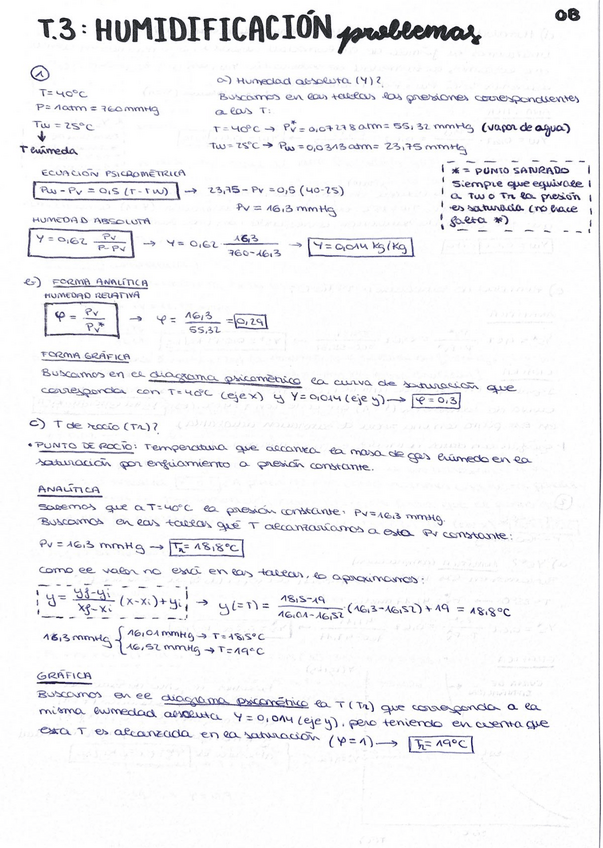 OB
T.3: HUMIDIFICACIÓN problemas
1
T=40ºC
P=1atm = 760mmHg
Tw=25ºC
↓
T húmeda
a) Humedad absoluta (Y)?
Buscamos en las tablas las presiones correspondientes
a las T:
T=40ºC → Pv* = 0,07278 atm = 55,32 mmHg (vapor de agua)
Tw=25ºC → Pw = 0,0313 atm = 23,75 mmHg
* = PUNTO SATURADO
Siempre que equivale
a Tw o Tr la presión
es saturada (no hace
falta *)
ECUACIÓN PSICROMÉTRICA
Pw - Pv = 0,5 (T - Tw) → 23,75 - Pv = 0,5 (40-25)
Pv = 16,3 mmHg
HUMEDAD ABSOLUTA
Y = 0,62 Pv / P-Pv → Y = 0,62 16,3 / 760-16,3 → Y = 0,014 kg/kg
b) FORMA ANALÍTICA
HUMEDAD RELATIVA
φ = Pv / Pv* → φ = 16,3 / 55,32 = 0,29
FORMA GRÁFICA
Buscamos en el diagrama psicométrico la curva de saturación que
corresponda con T=40ºC (eje x) y Y=0,014 (eje y) → φ = 0,3
c) T de rocío (Tr)?
• PUNTO DE ROCÍO: Temperatura que alcanza la masa de gas húmedo en la
saturación por enfriamiento a presión constante.
ANALÍTICA
Sabemos que a T=40ºC la presión constante: Pv=16,3 mmHg.
Buscamos en las tablas qué T alcanzaríamos a esta Pv constante:
Pv = 16,3 mmHg → Tr = 18,8ºC
Como el valor no está en las tablas, lo aproximamos:
y = yf-yi / xf-xi (x-xi) + yi → y(=T) = 18,5-19 / 16,01-16,52 (16,3-16,52) + 19 = 18,8ºC
16,3 mmHg { 16,01 mmHg → T=18,5ºC
16,52 mmHg → T=19ºC
GRÁFICA
Buscamos en el diagrama psicométrico la T (Tr) que corresponda a la
misma humedad absoluta Y=0,014 (eje y), pero teniendo en cuenta que
esta T es alcanzada en la saturación (φ=1) → Tr = 19ºC